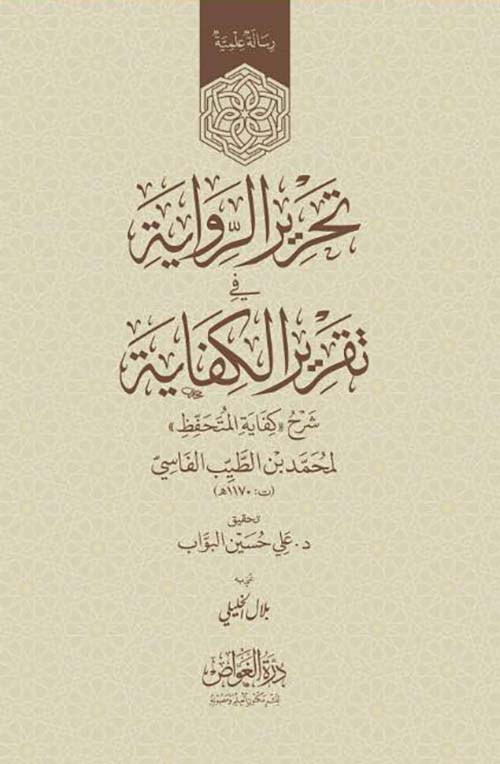 رِسَالَةٌ عِلْمِيَّةٌ
تَحْرِيرُ الرِّوَايَةِ
فِي
تَقْرِيرِ الكِفَايَةِ
شَرْحُ «كِفَايَةِ المُتَحَفِّظِ»
لِمُحَمَّد بْنِ الطَّيِّبِ الفَاسِيّ
(ت: ١١٧٠هـ)
تحقيق
د. عَلِي حُسَيْن البَوَّاب
عُنِيَ بِهِ
بلال الخليلي
دُرَّةُ الغَوَّاص
لِنَشْرِ مَكْنُونِ العِلْمِ وَمَصُونِهِ